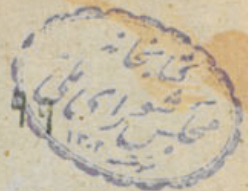 کتابخانه
مجلس شورای ملی
۱۳۰۲
۹۶